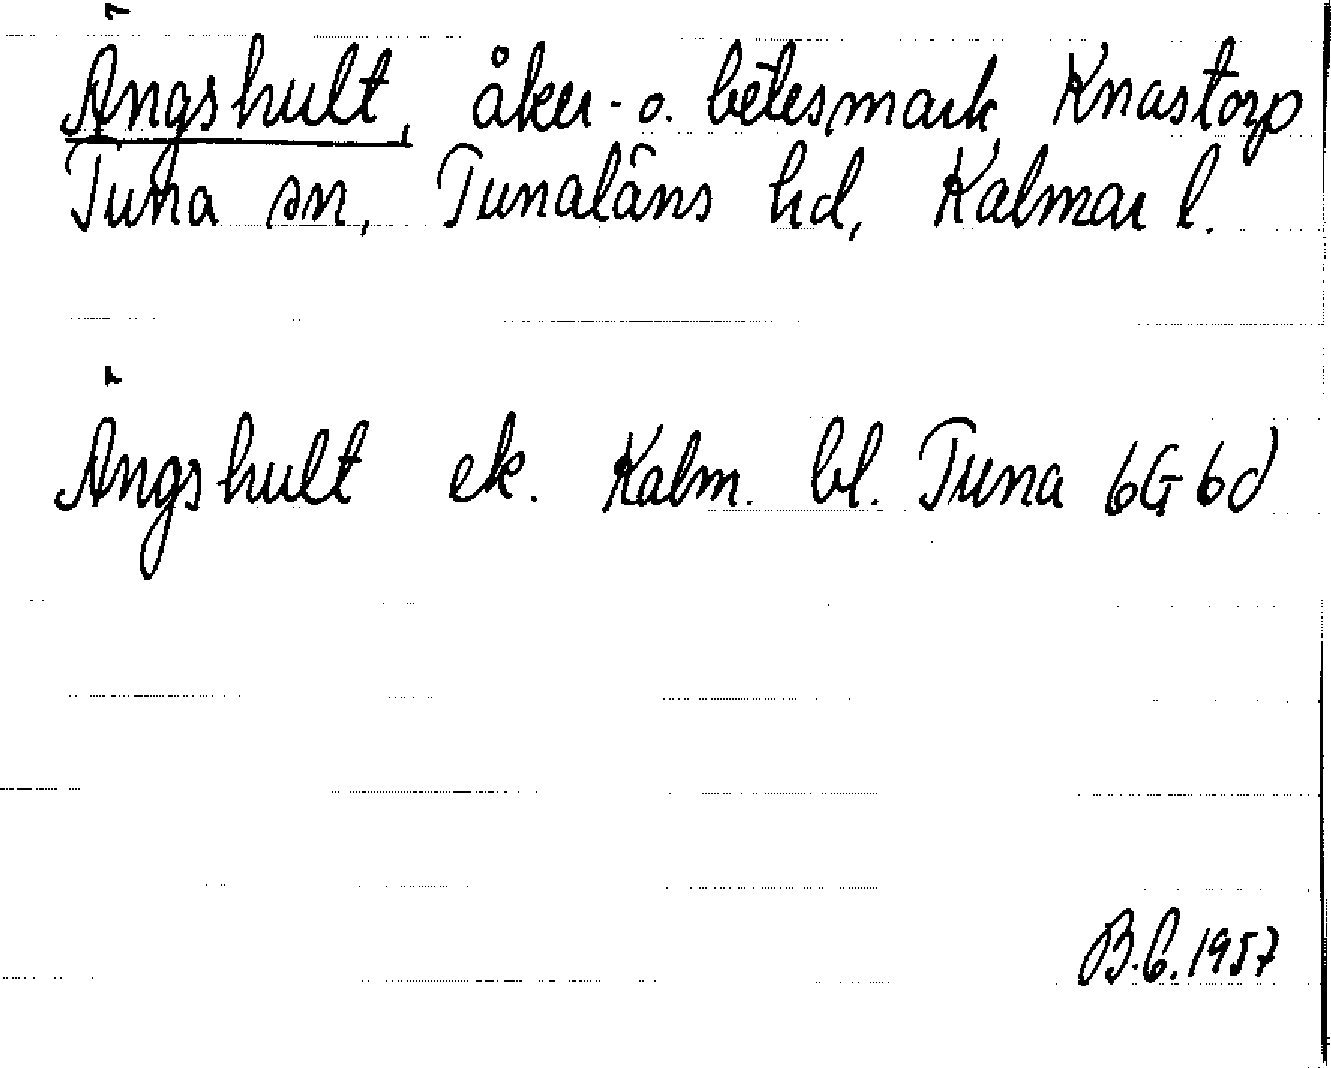 Ängshult, åker- o. betesmark, Knastorp
Tuna sn, Tunaläns hd, Kalmar l.
Ängshult ek. Kalm. bl. Tuna 6G 6d
B.C. 1957